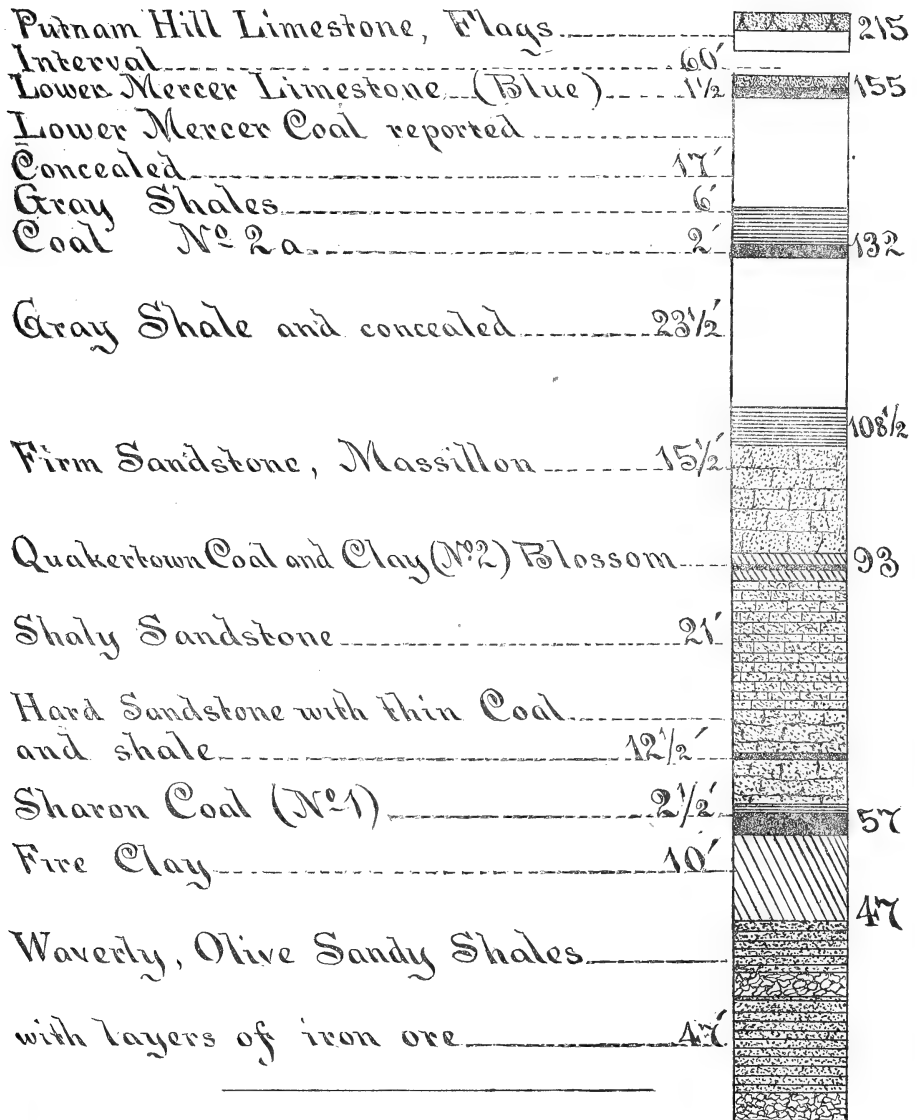 Putnam Hill Limestone, Flags 215
Interval 60'
Lower Mercer Limestone (Blue) 1½ 155
Lower Mercer Coal reported
Concealed 17'
Gray Shales 6'
Coal Nº 2a. 2' 132
Gray Shale and concealed 23½' 108½
Firm Sandstone, Massillon 15½'
Quakertown Coal and Clay (Nº2) Blossom 93
Shaly Sandstone 21'
Hard Sandstone with thin Coal
and shale 12½'
Sharon Coal (Nº1) 2½' 57
Fire Clay 10'
47
Waverly, Olive Sandy Shales
with layers of iron ore 47'